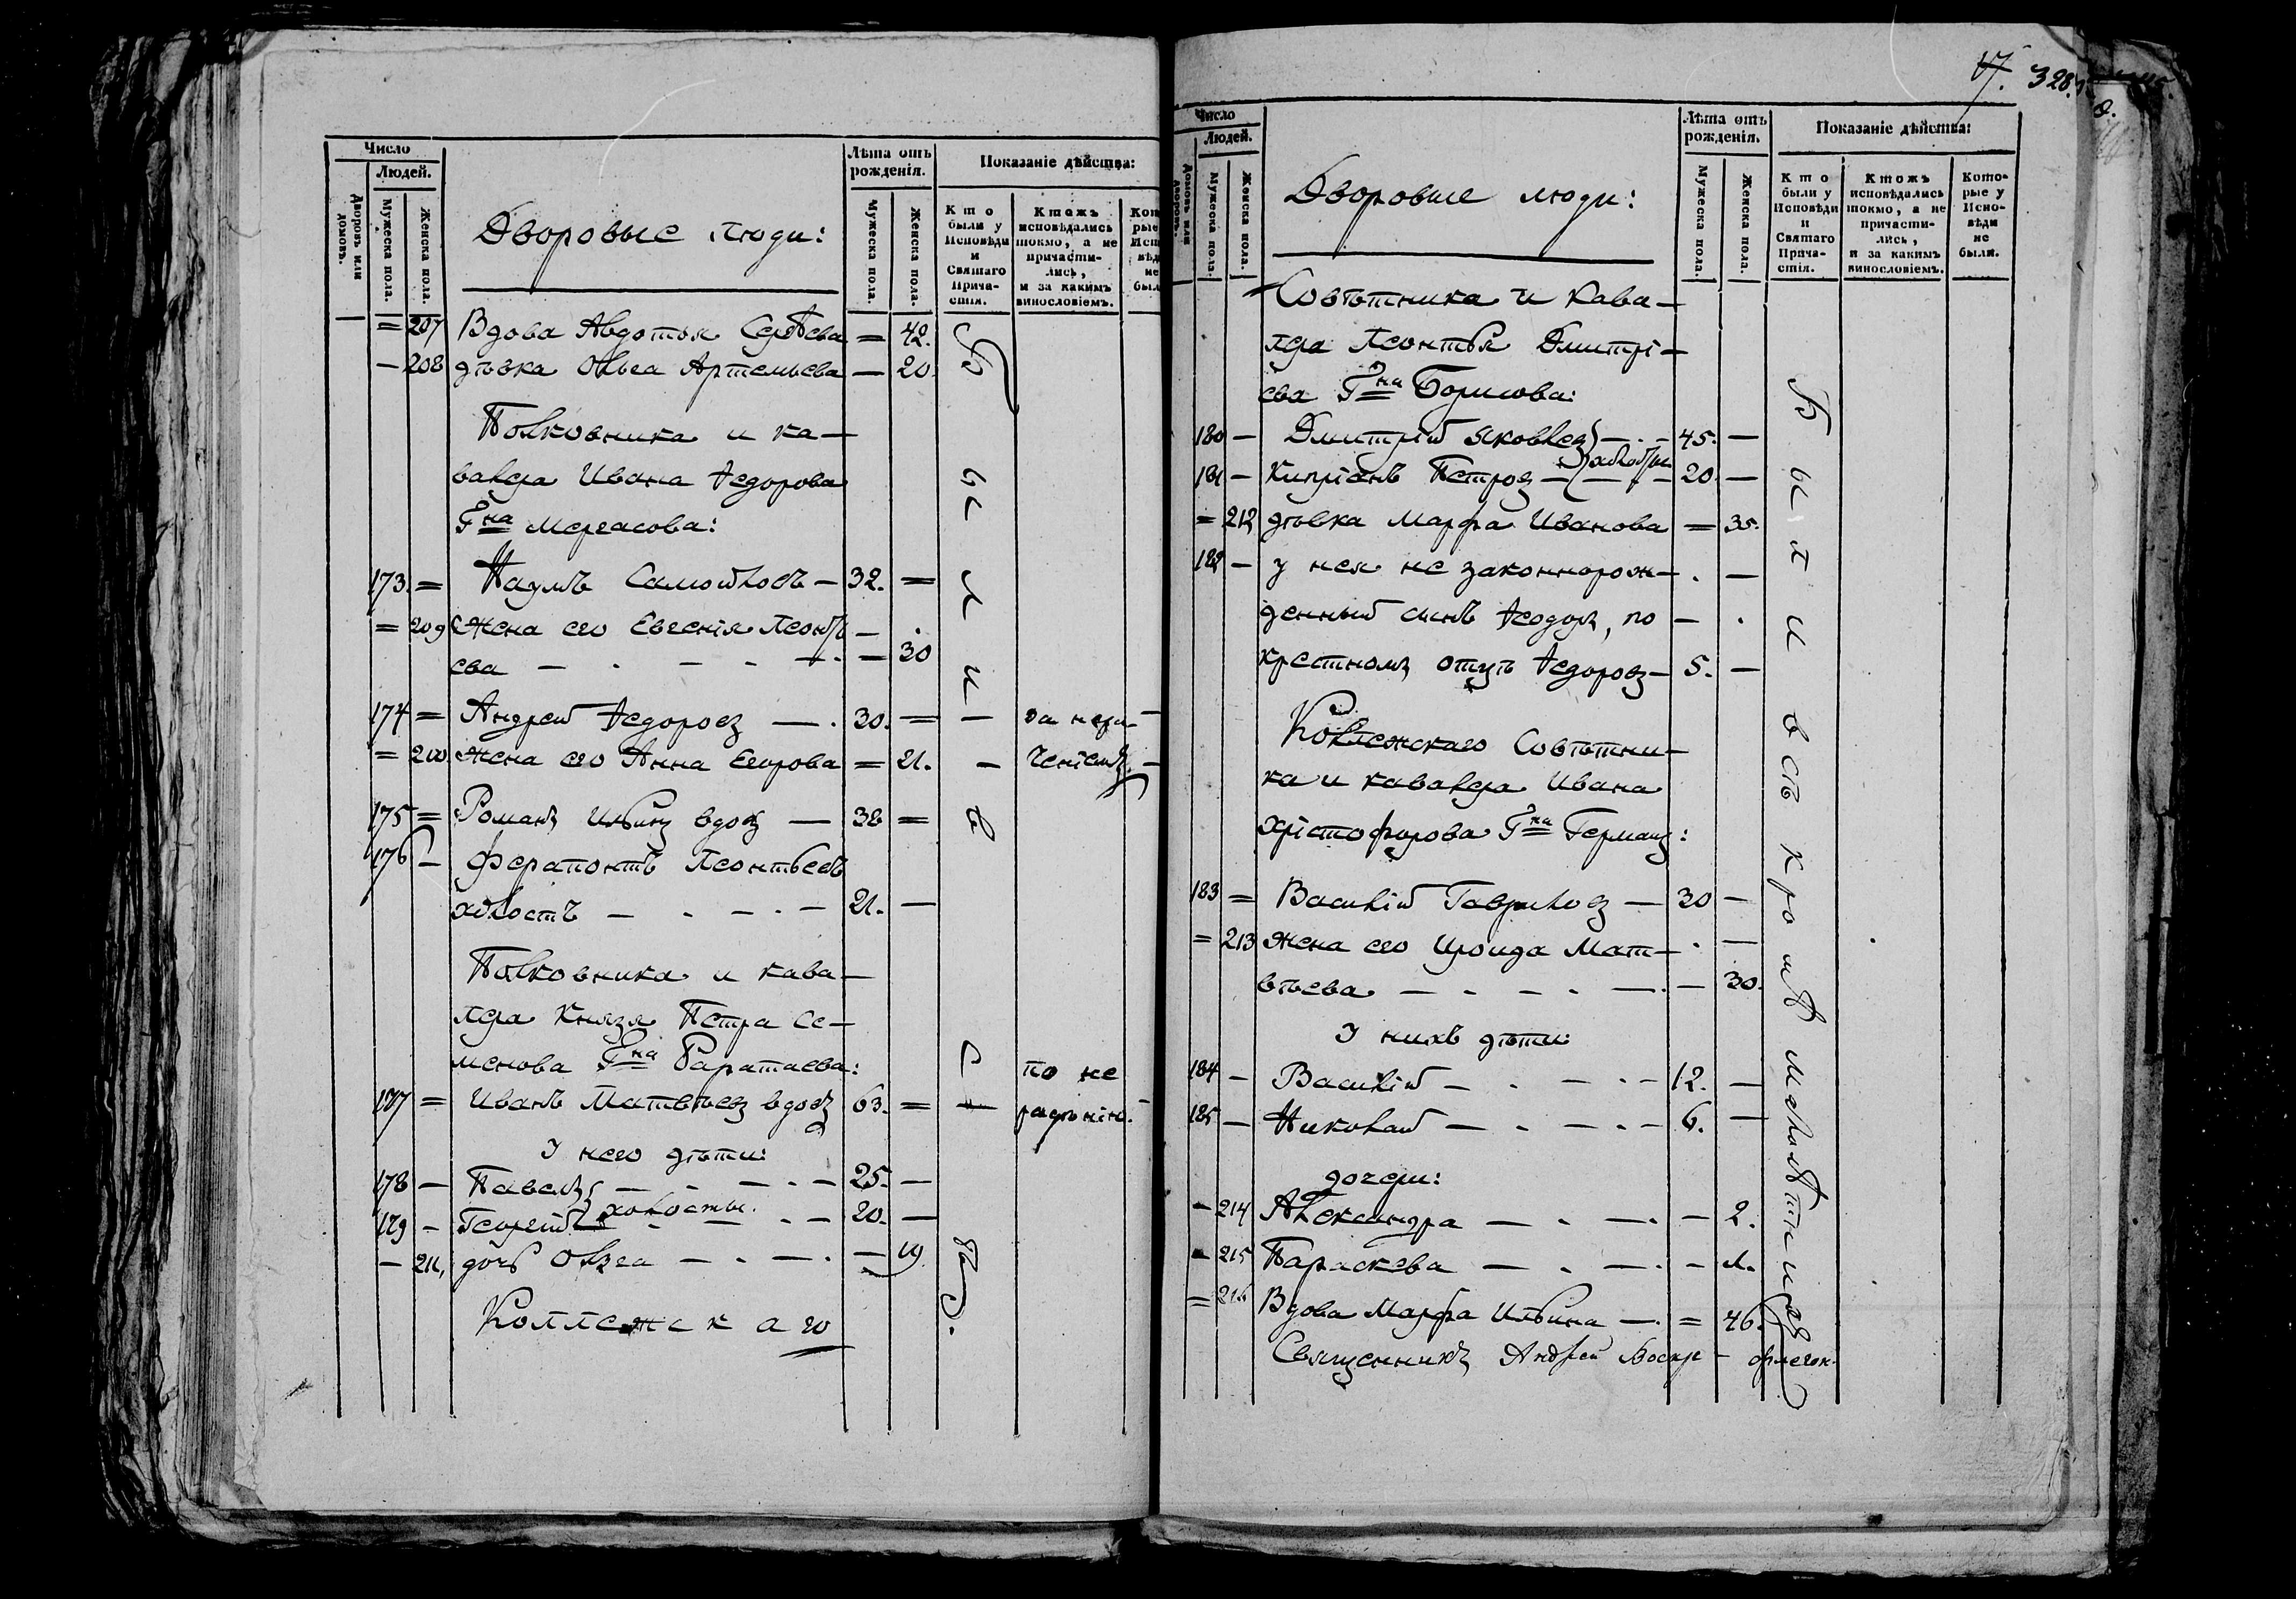 Число
Людей.
Дворовъ или домовъ.
Мужеска пола.
Женска пола.
Дворовые люди:
Лѣта отъ рожденія.
Мужеска пола.
Женска пола.
Показаніе дѣйства:
Кто были у Исповѣди и Святаго Прича-стія.
Ктожъ исповѣдались токмо, а не причасти-лись, и за какимъ винословіемъ.
= 207 Вдова Авдотья = 42.
— 208 дѣвка Ольга Артемьева — 20.
Полковника и ка—
валера Ивана Ѳедорова
Гна Мергасова:
173. = Наумъ Самойловъ — 32. =
= 209 Жена его Евгенія Леонть
ева — . — . — . — 30
174 = Андрей Ѳедоровъ — . 30. = — за нера—
= 210. Жена его Анна Егорова = 21. — ченіемъ —
175 = Романъ Ильинъ вдовъ — 38 =
176 — Ферапонтъ Леонтьевъ
холостъ — . — . — 21. —
Полковника и кава—
лера Князя Петра Се—
менова Гна Баратаева:
177 = Иванъ Матвѣевъ вдовъ 63. = — по не радѣнію.
У него дѣти:
178 — Павелъ — . — . — 25. —
холосты.
179 — Георгій — . — 20. —
— 211, дочь Ольга — . — . — 19.
Коллежскаго
Были всѣ
17. 328
Число
Людей.
Домовъ или дворовъ.
Мужеска пола.
Женска пола.
Дворовые люди:
Лѣта отъ рожденія.
Мужеска пола.
Женска пола.
Показаніе дѣйства:
Кто были у Исповѣди и Святаго Прича-стія.
Ктожъ исповѣдались токмо, а не причасти-лись, и за какимъ винословіемъ.
Кото-рые у Испо-вѣди не были.
Совѣтника и Кава—
лера Леонтья Дмитрі—
ева Гна Борисова:
180 — Дмитрій Яковлевъ — . — 45. —
холосты
181 — Кипріанъ Петровъ — — . — 20. —
= 212 дѣвка Марфа Иванова = 35.
182 — у нея не законнорож— . —
денный сынъ Ѳеодоръ, по — .
крестномъ отцѣ Ѳедоровъ — 5. —
Коллежскаго Совѣтни—
ка и кавалера Ивана
Христофорова Гна Германъ:
183 = Василій Гавриловъ — 30 —
= 213 жена его Ироида Мат— . —
вѣева — . — . — . — 30.
У нихъ дѣти:
184 — Василій — . — . — 12. —
185 — Николай — . — . — 6. —
дочери:
— 214 Александра — . — . — 2.
= 215 Параскева — . — . — 1.
= 216 Вдова Марфа Ильина — . = 46.
Священникъ Андрей
Были всѣ кромѣ малолѣтныхъ